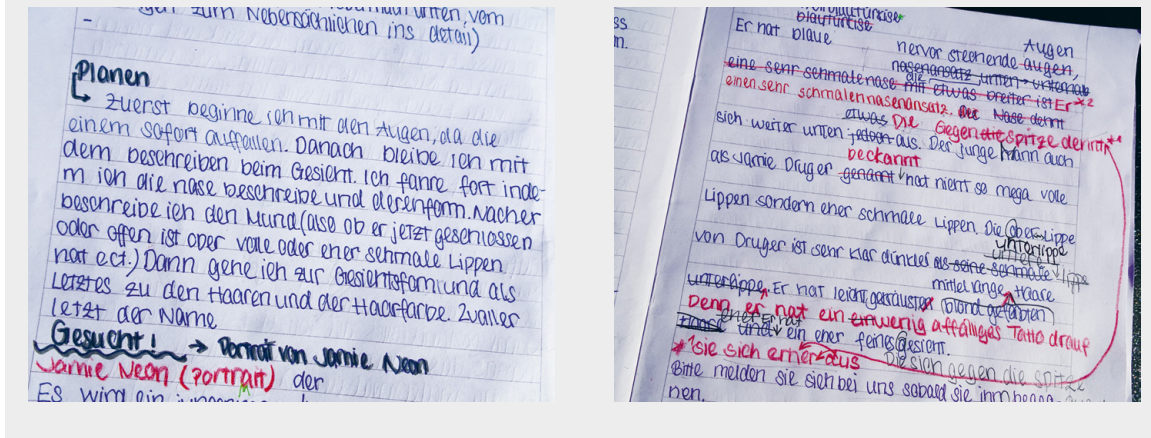 zum Nebensächlichen ins detail)
-
Planen
zuerst beginne ich mit den Augen, da die
einem sofort auffallen. Danach bleibe ich mit
dem beschreiben beim Gesicht. Ich fahre fort inde-
m ich die nase beschreibe und derenform. Nacher
beschreibe ich den Mund (also ob er jetzt geschlossen
oder offen ist oper volle oder eher schmale Lippen
hat ect.) Dann gehe ich zur Gesichtsform und als
Letztes zu den Haaren und der Haarfarbe. Zualler
letzt der Name
Gesucht! → Portrait von Jamie Neon
Jamie Neon (Portrait) der
Es wird ein
blautürkise
Er hat blaue Augen
hervor stechende augen,
nasenansatz unten unterhalb
eine sehr schmale nase mit etwas breiter ist Er *2
die
einen sehr schmalen nasenansatz. Nase dehnt
etwas Die Gegen die spitze der
sich weiter unten jedoch aus. Der junge Mann auch
beckannt
als Jamie Druger genannt hat nicht so mega volle
Lippen sondern eher schmale Lippen. Die Oberlippe
unterlippe
von Druger ist sehr klar dünkler als seine schmale
mittellange Haare
unterlippe. Er hat leicht (blond gefärbten)
Denn er hat ein einwenig affälliges Tatto drauf
eher Er hat
Haare und ein eher feines gesicht.
*1 sie sich erner aus Die sich gegen die spitze
Bitte melden sie sich bei uns sobald sie ihm
nen.